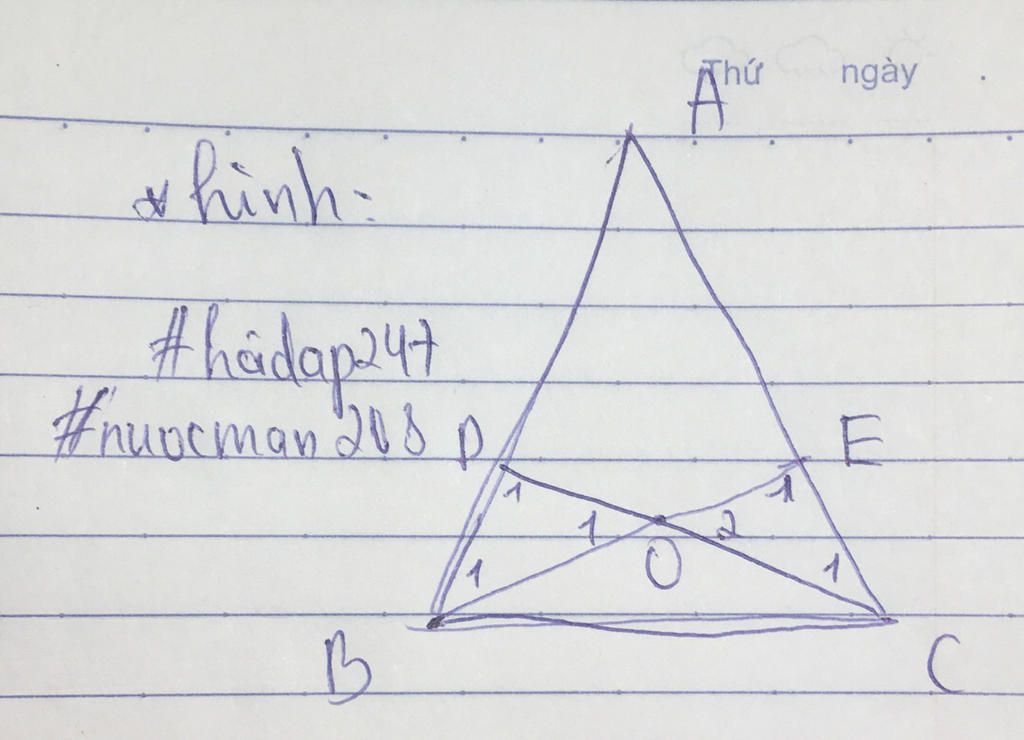 Thứ ngày
A
* hình:
#hỏidap247
#nuocman208
D E
1 1
1 2
1 O 1
B C